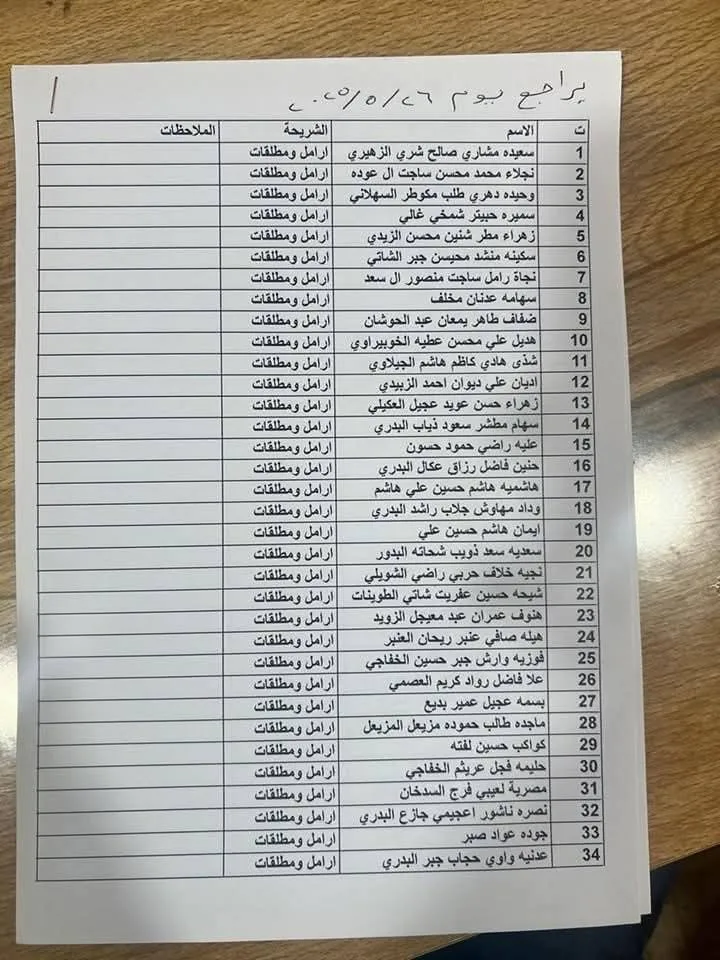 يراجع يوم ٢٠٢٥/٥/٢٦
ت الاسم الشريحة الملاحظات
1 سعيده مشاري صالح شري الزهيري ارامل ومطلقات
2 نجلاء محمد محسن ساجت ال عوده ارامل ومطلقات
3 وحيده دهري طلب مكوطر السهلاني ارامل ومطلقات
4 سميره حبيتر شمخي غالي ارامل ومطلقات
5 زهراء مطر شنين محسن الزيدي ارامل ومطلقات
6 سكينه منشد محيسن جبر الشاتي ارامل ومطلقات
7 نجاة رامل ساجت منصور ال سعد ارامل ومطلقات
8 سهامه عدنان مخلف ارامل ومطلقات
9 ضفاف طاهر يمعان عبد الحوشان ارامل ومطلقات
10 هديل علي محسن عطيه الخوبيراوي ارامل ومطلقات
11 شذى هادي كاظم هاشم الجيلاوي ارامل ومطلقات
12 اديان علي ديوان احمد الزبيدي ارامل ومطلقات
13 زهراء حسن عويد عجيل العكيلي ارامل ومطلقات
14 سهام مطشر سعود ذياب البدري ارامل ومطلقات
15 عليه راضي حمود حسون ارامل ومطلقات
16 حنين فاضل رزاق عكال البدري ارامل ومطلقات
17 هاشميه هاشم حسين علي هاشم ارامل ومطلقات
18 وداد مهاوش جلاب راشد البدري ارامل ومطلقات
19 ايمان هاشم حسين علي ارامل ومطلقات
20 سعديه سعد ذويب شحاته البدور ارامل ومطلقات
21 نجيه خلاف حربي راضي الشويلي ارامل ومطلقات
22 شيحه حسين عفريت شاتي الطوينات ارامل ومطلقات
23 هنوف عمران عبد معيجل الزويد ارامل ومطلقات
24 هيله صافي عنبر ريحان العنبر ارامل ومطلقات
25 فوزيه وارش جبر حسين الخفاجي ارامل ومطلقات
26 علا فاضل رواد كريم العصمي ارامل ومطلقات
27 بسمه عجيل عمير بديع ارامل ومطلقات
28 ماجده طالب حموده مزيعل المزيعل ارامل ومطلقات
29 كواكب حسين لفته ارامل ومطلقات
30 حليمه فجل عريثم الخفاجي ارامل ومطلقات
31 مصرية لعيبي فرج السدخان ارامل ومطلقات
32 نصره ناشور اعجيمي جازع البدري ارامل ومطلقات
33 جوده عواد صبر ارامل ومطلقات
34 عدنيه واوي حجاب جبر البدري ارامل ومطلقات